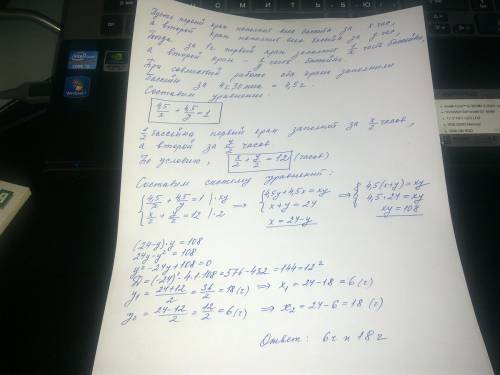 Пусть первый кран наполнит весь бассейн за x час,
а второй кран наполнит весь бассейн за y час,
Тогда
за 1ч первый кран заполнит 1/x часть бассейна,
а второй кран – 1/y часть бассейна.
При совместной работе оба крана заполнили
бассейн за 4ч 30мин = 4,5ч.
Составим уравнение:
4,5/x + 4,5/y = 1
1/2 бассейна первый кран заполнит за x/2 часов,
а второй за y/2 часов
По условию, x/2 + y/2 = 12 (часов)
Составим систему уравнений:
{4,5/x + 4,5/y = 1 | ·xy ⇒ {4,5y+4,5x = xy ⇒ {4,5(x+y) = xy
{x/2 + y/2 = 12 | ·2 {x+y = 24 {4,5·24 = xy
x = 24-y xy = 108
(24-y)·y = 108
24y-y² = 108
y²-24y+108 = 0
D = (-24)²-4·1·108 = 576-432 = 144 = 12²
y₁ = (24+12)/2 = 36/2 = 18 (ч) ⇒ x₁ = 24-18 = 6 (ч)
y₂ = (24-12)/2 = 12/2 = 6 (ч) ⇒ x₂ = 24-6 = 18 (ч)
Ответ: 6ч и 18ч